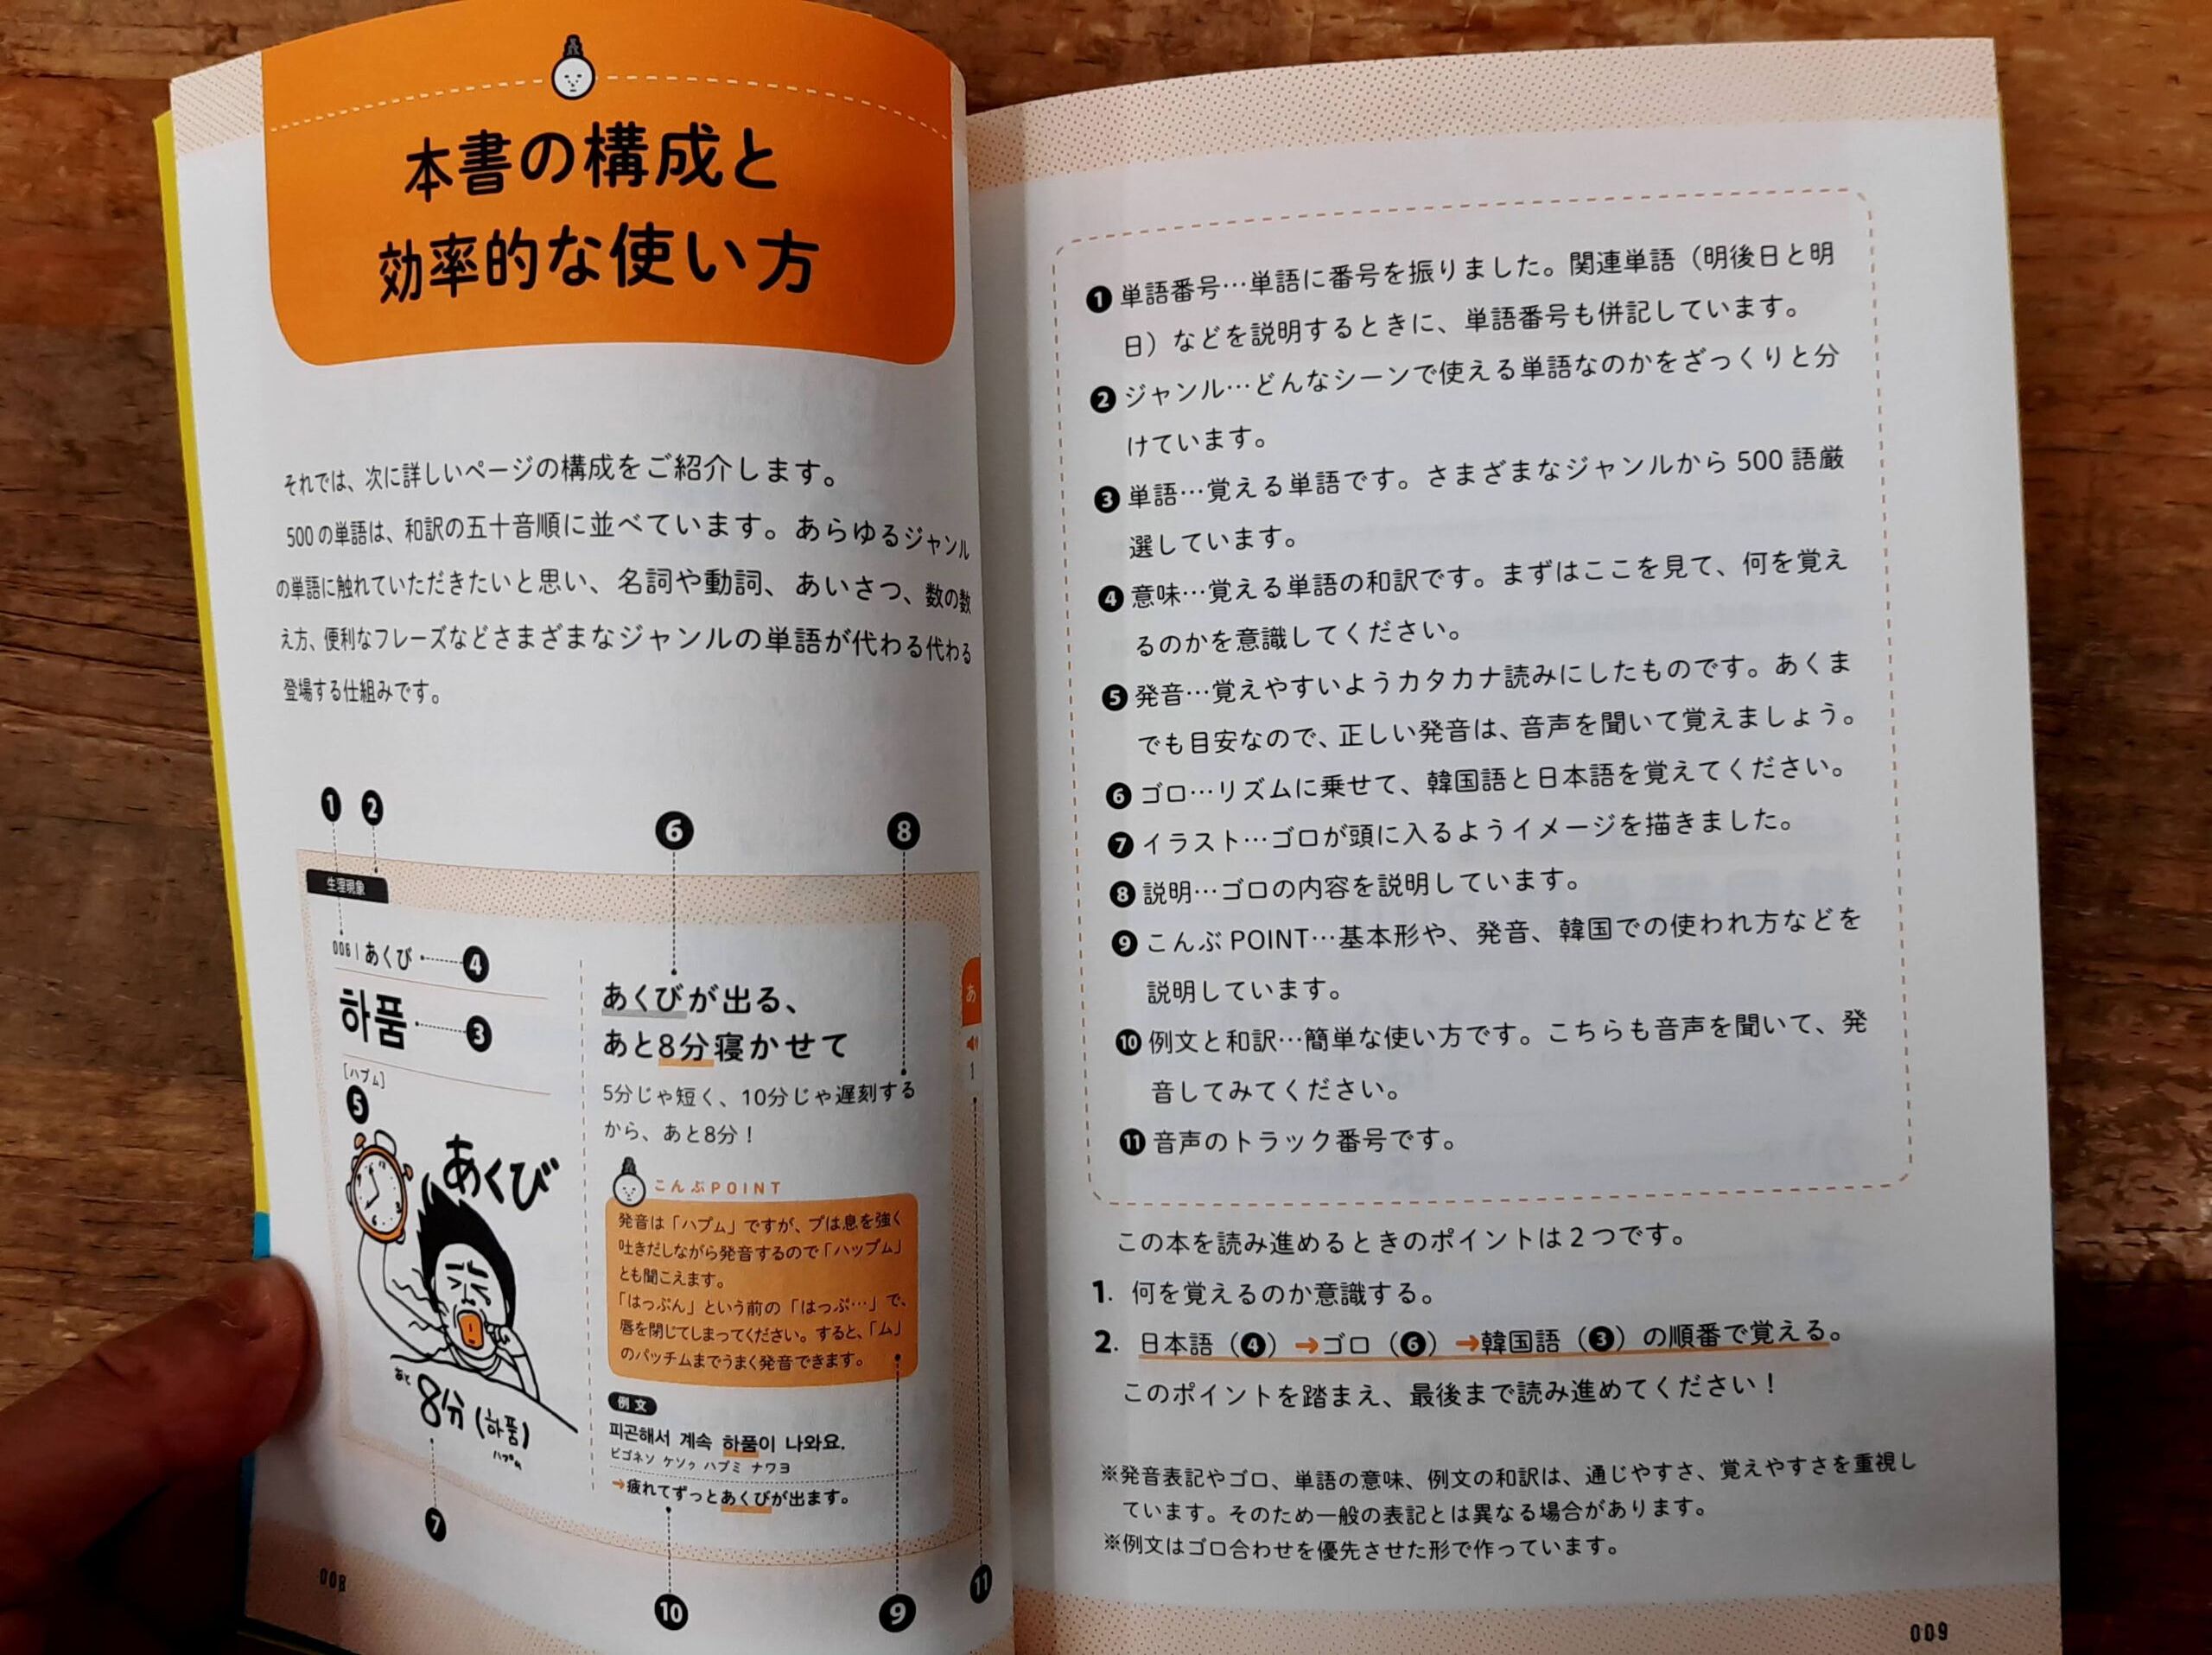 本書の構成と
効率的な使い方
それでは、次に詳しいページの構成をご紹介します。
500の単語は、和訳の五十音順に並べています。あらゆるジャンル
の単語に触れていただきたいと思い、名詞や動詞、あいさつ、数の数
え方、便利なフレーズなどさまざまなジャンルの単語が代わる代わる
登場する仕組みです。
❶ ❷ ❻ ❽
生理現象
006 | あくび ❹
하품 ❸
[ハプム]
❺
あくび
あと
8分 (하품)
ハプム
❼
あくびが出る、
あと8分寝かせて
5分じゃ短く、10分じゃ遅刻する
から、あと8分！
こんぶPOINT
発音は「ハプム」ですが、プは息を強く
吐きだしながら発音するので「ハップム」
とも聞こえます。
「はっぷん」という前の「はっぷ…」で、
唇を閉じてしまってください。すると、「ム」
のパッチムまでうまく発音できます。
例文
피곤해서 계속 하품이 나와요.
ピゴネソ ケソク ハプミ ナワヨ
→疲れてずっとあくびが出ます。
あ
1
❿ ❾ ⓫
008
❶単語番号…単語に番号を振りました。関連単語（明後日と明
日）などを説明するときに、単語番号も併記しています。
❷ジャンル…どんなシーンで使える単語なのかをざっくりと分
けています。
❸単語…覚える単語です。さまざまなジャンルから500語厳
選しています。
❹意味…覚える単語の和訳です。まずはここを見て、何を覚え
るのかを意識してください。
❺発音…覚えやすいようカタカナ読みにしたものです。あくま
でも目安なので、正しい発音は、音声を聞いて覚えましょう。
❻ゴロ…リズムに乗せて、韓国語と日本語を覚えてください。
❼イラスト…ゴロが頭に入るようイメージを描きました。
❽説明…ゴロの内容を説明しています。
❾こんぶPOINT…基本形や、発音、韓国での使われ方などを
説明しています。
❿例文と和訳…簡単な使い方です。こちらも音声を聞いて、発
音してみてください。
⓫音声のトラック番号です。
この本を読み進めるときのポイントは2つです。
1. 何を覚えるのか意識する。
2. 日本語（❹）→ゴロ（❻）→韓国語（❸）の順番で覚える。
このポイントを踏まえ、最後まで読み進めてください！
※発音表記やゴロ、単語の意味、例文の和訳は、通じやすさ、覚えやすさを重視し
ています。そのため一般の表記とは異なる場合があります。
※例文はゴロ合わせを優先させた形で作っています。
009